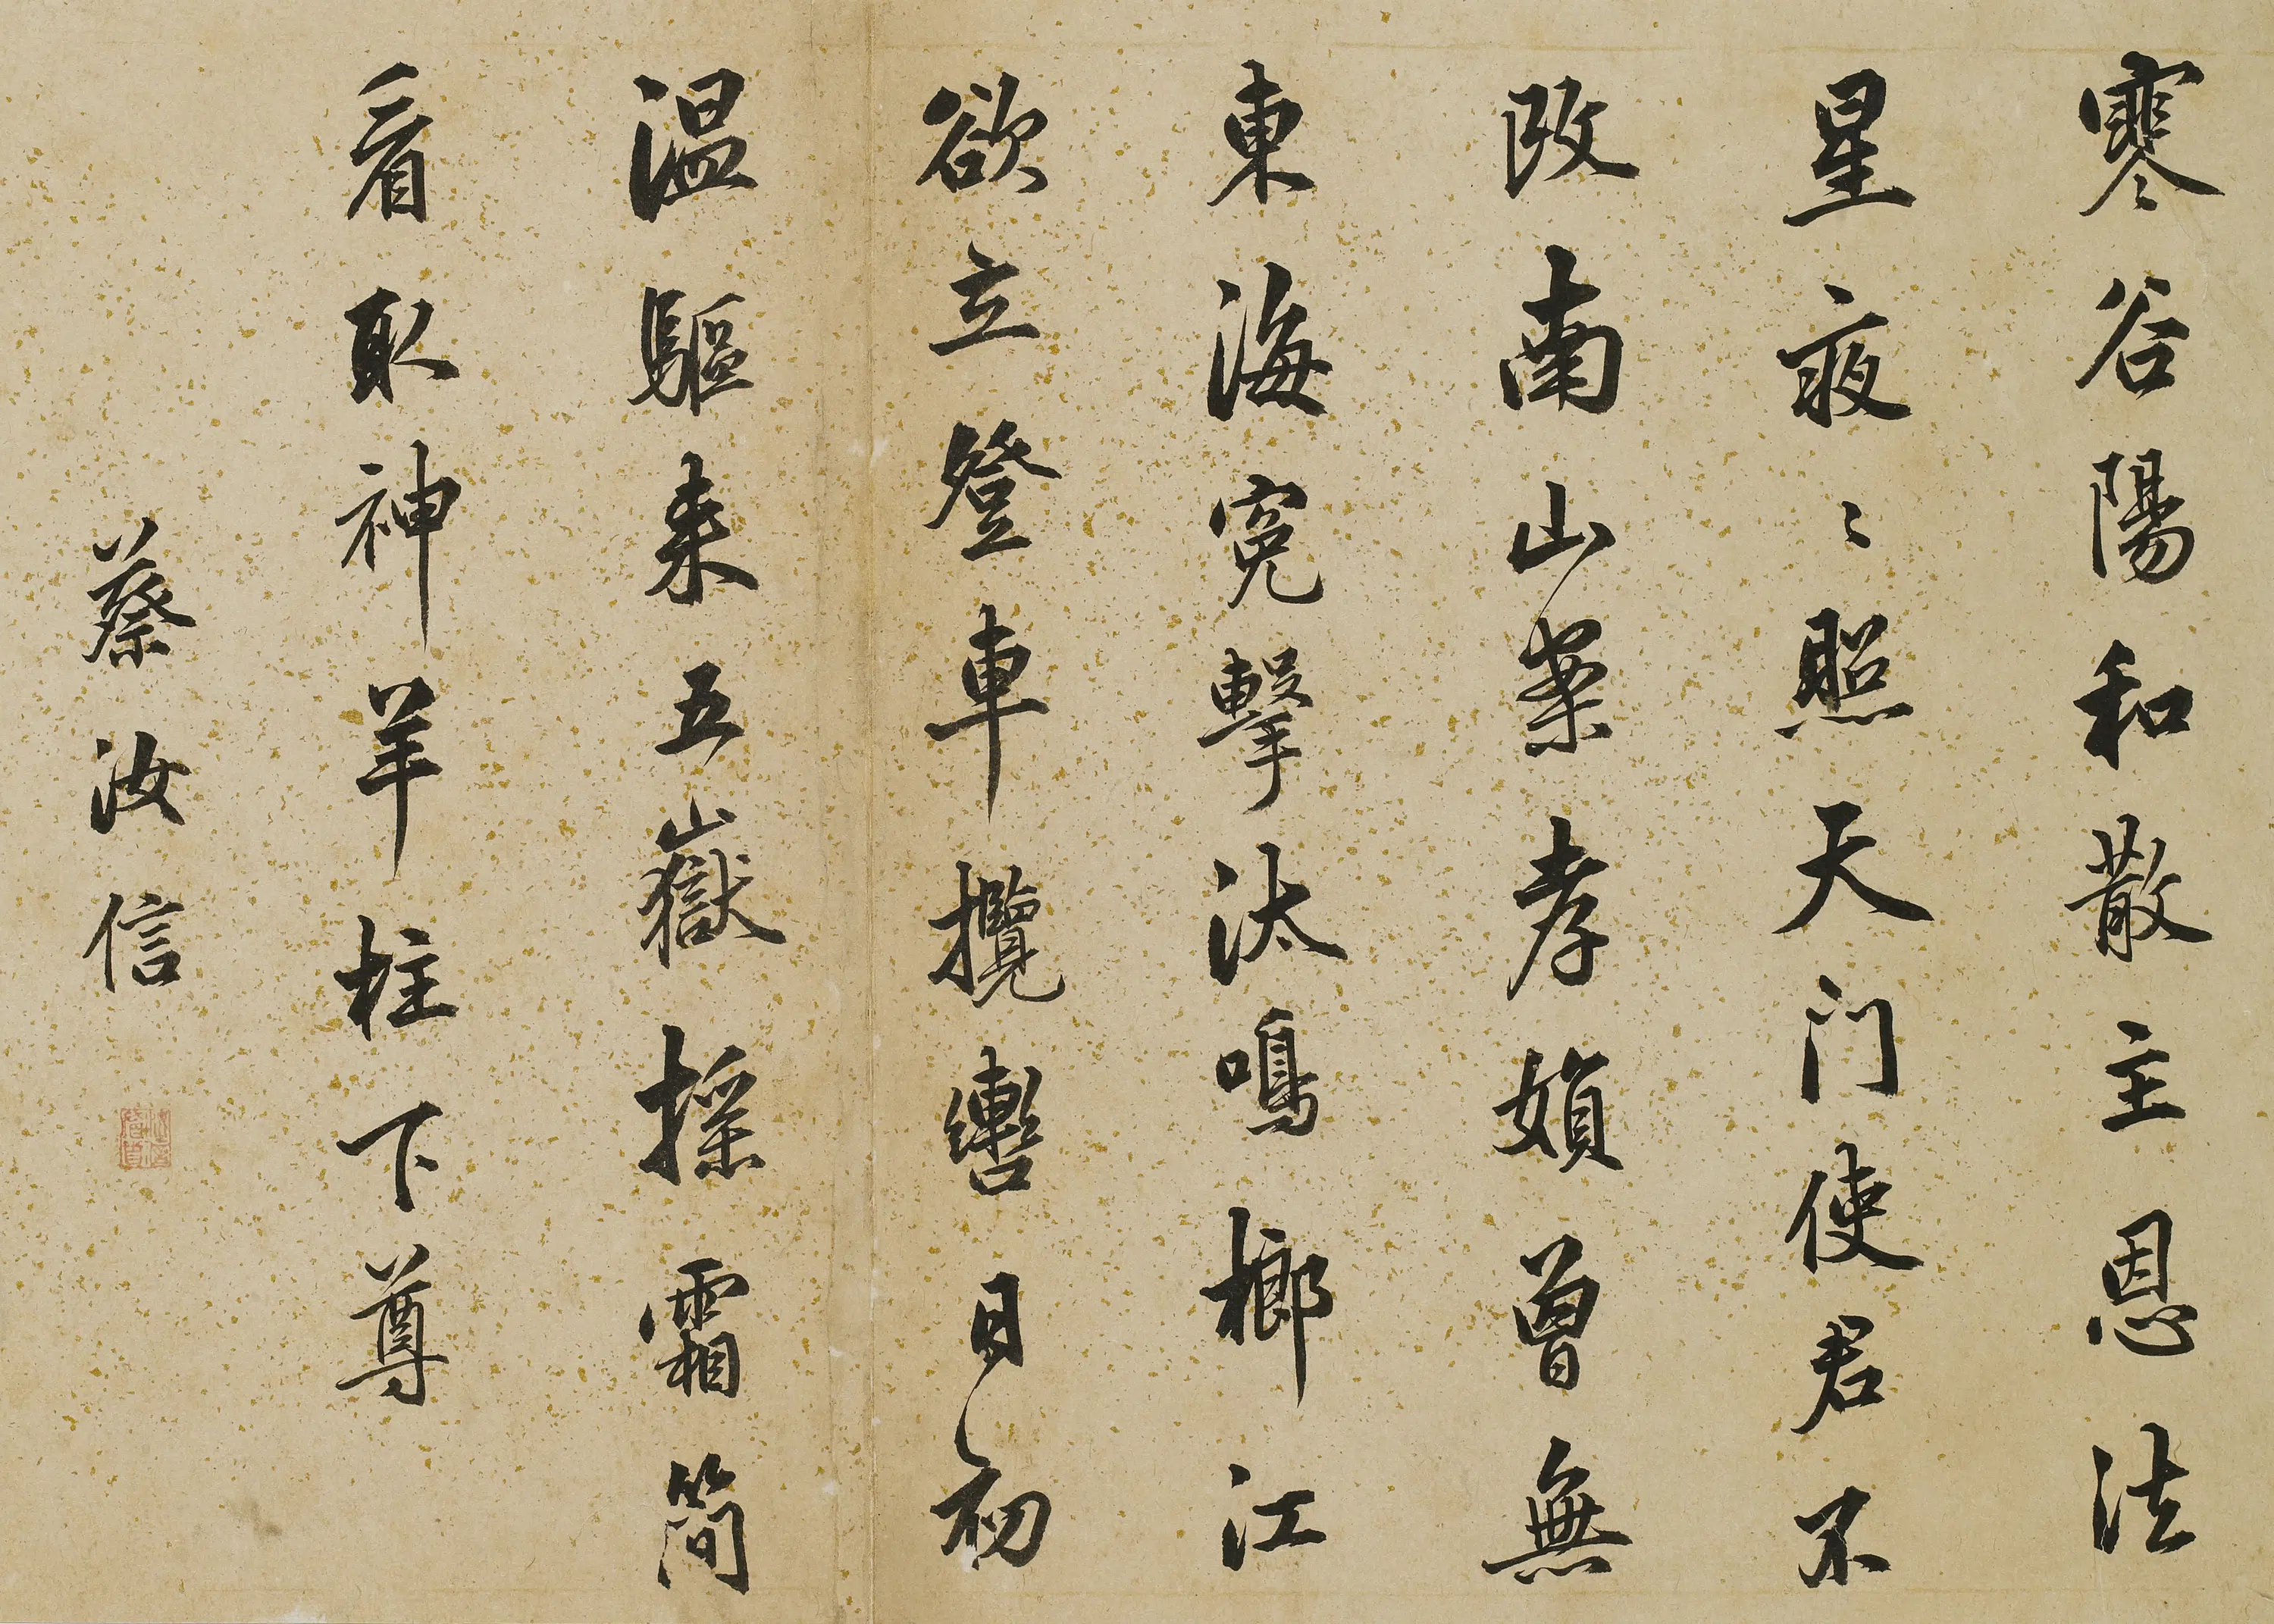 寒谷陽和散主恩法
星夜〻照天門使君不
改南山案孝婦曾無
東海冤擊汰鳴榔江
欲立登車攬轡日初
温驅来五嶽揺霜簡
看取神羊柱下尊
蔡汝信